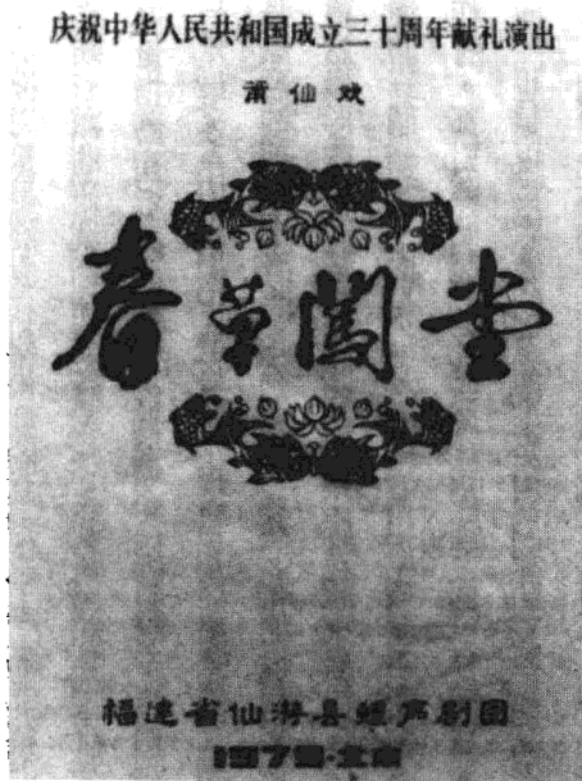 庆祝中华人民共和国成立三十周年献礼演出
莆仙戏
春草闯堂
福建省仙游县鲤声剧团
1979·北京